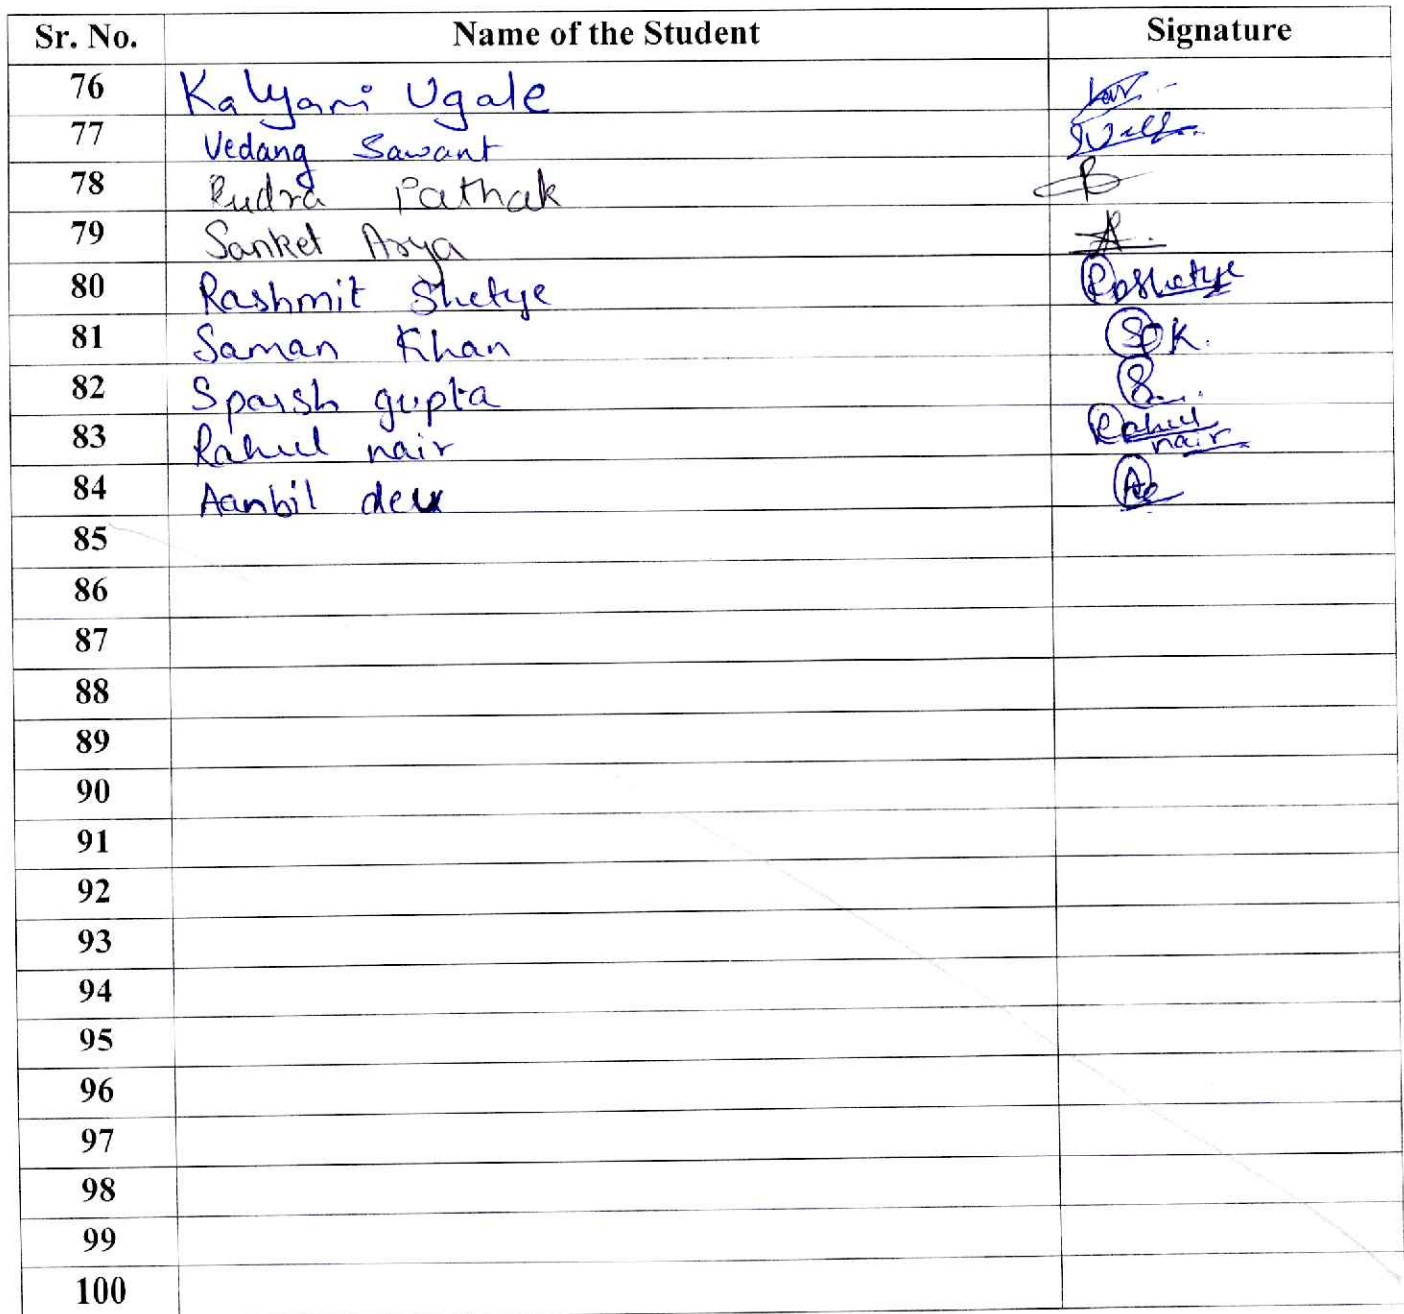 Sr. No. Name of the Student Signature
76 Kalyani Ugale
77 Vedang Sawant
78 Rudra Pathak
79 Sanket Arya
80 Rashmit Shetye
81 Saman Khan SK.
82 Sparsh gupta
83 Rahul nair Rahul nair
84 Aanbil
85
86
87
88
89
90
91
92
93
94
95
96
97
98
99
100